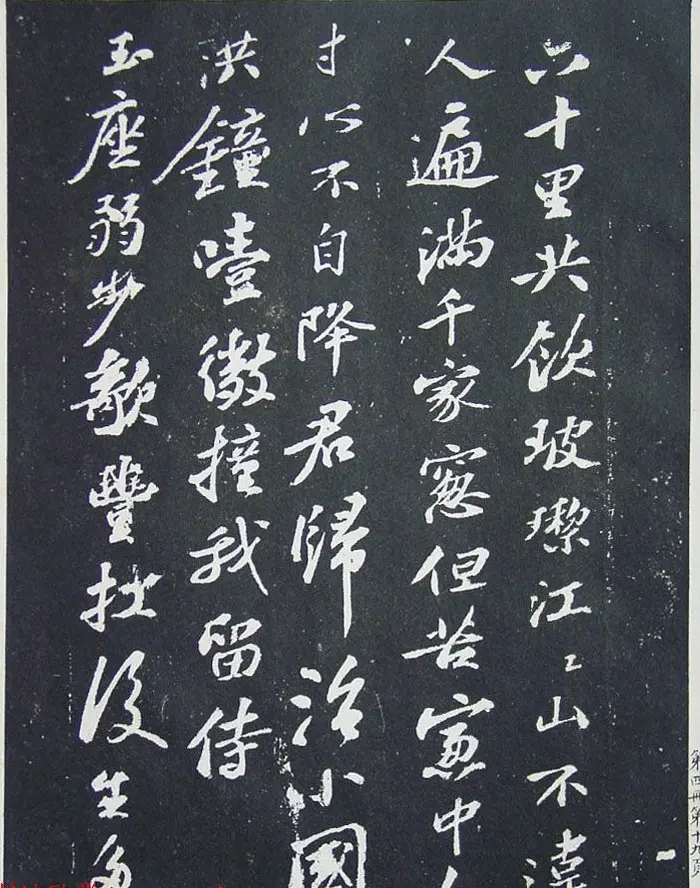 六十里共飲玻瓈江〻山不違
人遍滿千家窓但苦窓中人
寸心不自降君歸治小國
洪鐘噎微撞我留侍
玉座弱步欹豐扛後生多
第四冊第十九頁